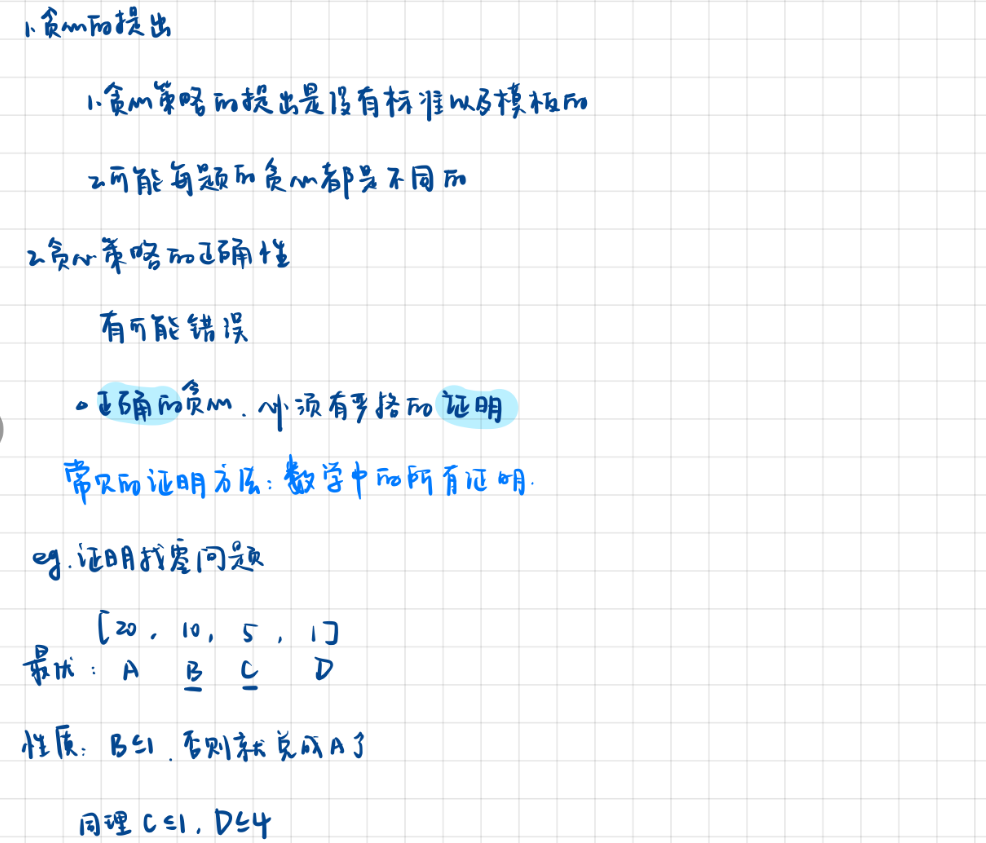 1.贪心的提出
1.贪心策略的提出是没有标准以及模板的
2.可能每题的贪心都是不同的
2.贪心策略的正确性
有可能错误
正确的贪心.必须有严格的证明
常见的证明方法:数学中的所有证明.
eg.证明找零问题
[20, 10, 5, 1]
最优: A B C D
性质: B≤1.否则就兑成A了
同理 C≤1, D≤4